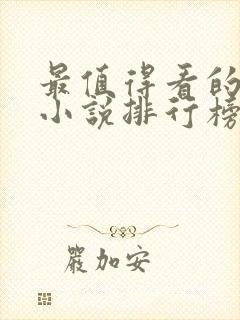 最值得看的
小说排行榜
严加安